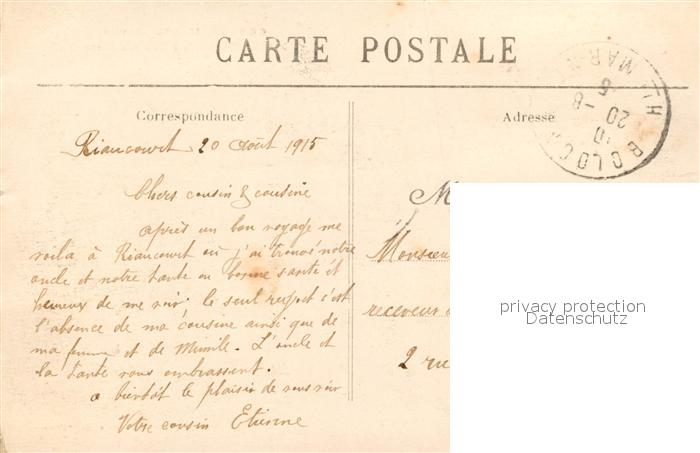 CARTE POSTALE
Correspondance
Adresse
BOLOG
Hte MAR
20 -8
15
Riaucourt 20 août 1915
Chers cousin & cousine
après un bon voyage me
voila à Riaucourt où j'ai trouvé notre
oncle et notre tante en bonne santé et
heureux de me voir. le seul regret c'est
l'absence de ma cousine ainsi que de
ma femme et de Mimile. L'oncle et
la tante vous embrassent.
a bientôt le plaisir de vous voir
Votre cousin Etienne
M
Monsieur
receveur
2 rue
privacy protection
Datenschutz